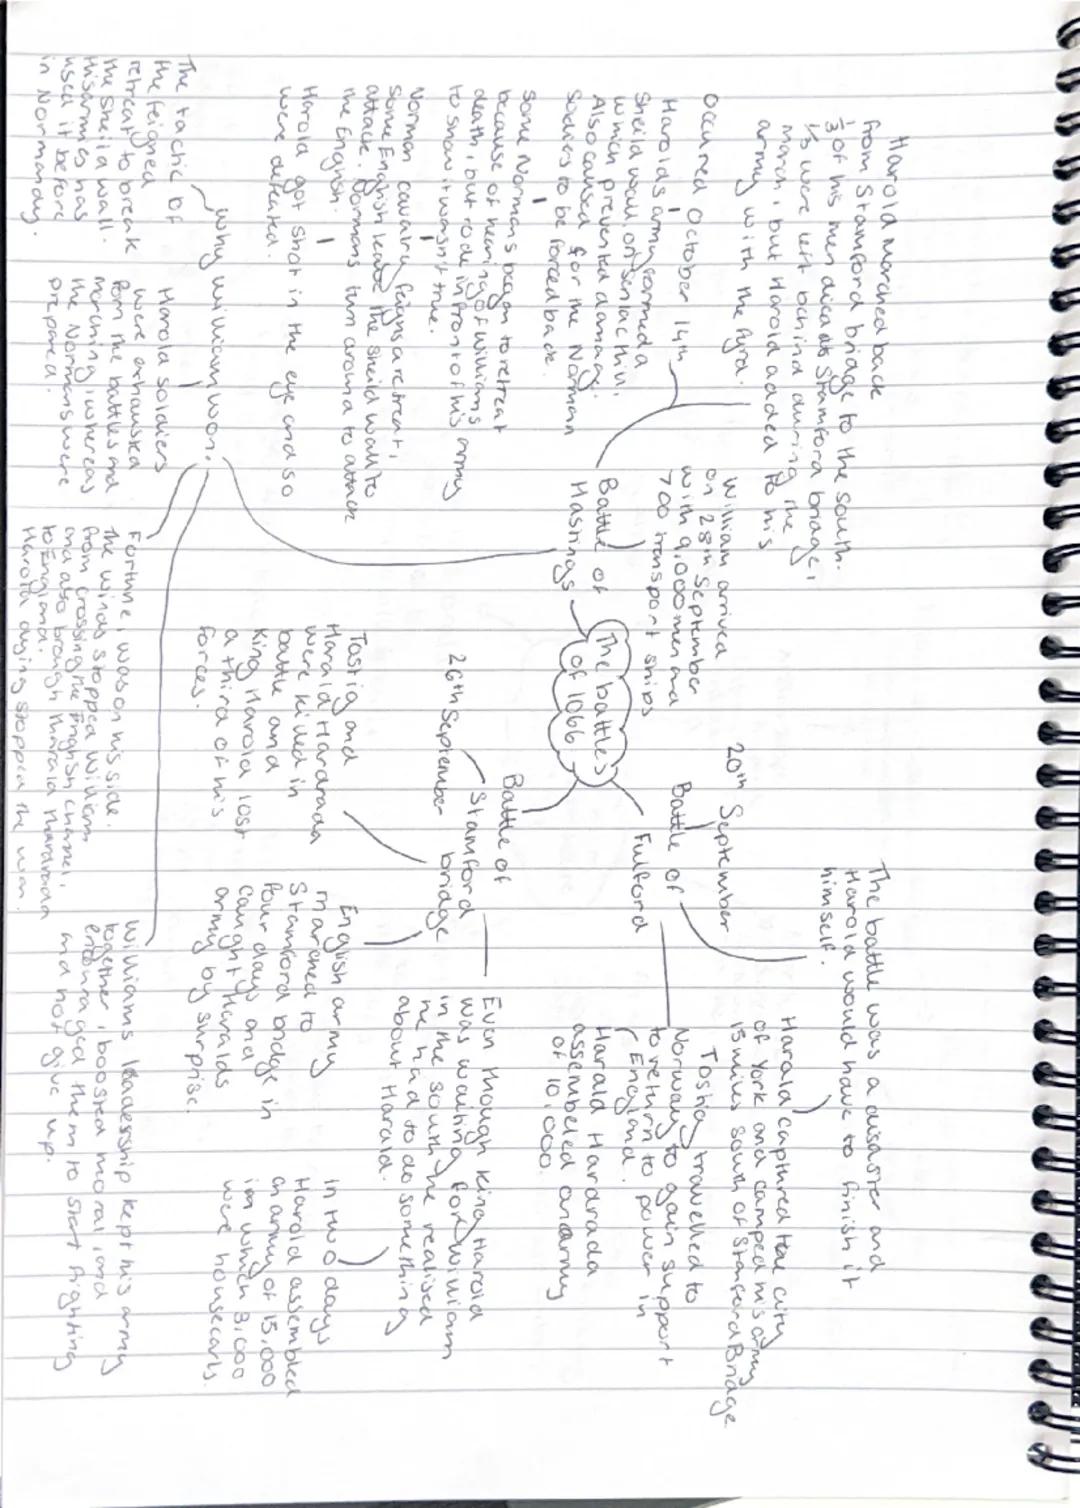 Harold marched back
from Stamford bridge to the south.
1/3 of his men died at Stamford bridge,
1/3 were left behind during the
march, but Harold added to his
army with the fyrd.
Occured October 14th
Harolds army formed a
sheild wall on Senlac hill,
which prevented damage.
Also caused for the Norman
sodiers to be forced back.
Some Normans began to retreat
because of hearing of williams
death, but rode in front of his army
to show it wasn't true.
Norman cavalry feigns a retreat,
some English leave the sheild wall to
attack. Normans turn around to attack
the English.
Harold got shot in the eye and so
were defeated.
William arrived
on 28th September
with 9,000 men and
700 transport ships
Battle of
Hastings
The battles
of 1066
20th September
Battle of
Fulford
The battle was a disaster and
Harold would have to finish it
himself.
Harald captured the city
of York and camped his army
15 miles south of Stamford Bridge
Tostig travelled to
Norway to gain support
to return to power in
England.
Harald Hardrada
assembeled an army
of 10,000.
Battle of
Stamford
bridge
26th September
Tostig and
Harald Hardrada
were killed in
battle and
King Harold lost
a third of his
forces.
English army
marched to
Stamford bridge in
four days and
caught Haralds
army by surprise.
Even though King Harold
was waiting for William
in the south he realised
he had to do something
about Harald.
in two days
Harold assembled
an army of 15,000
in which 3,000
were housecarls.
why william won.
The tactic of
the feigned
retreat to break
the sheild wall.
used it before
in Normandy.
Harold soldiers
were exhausted
from the battles and
marching, whereas
the Normans were
prepared.
Fortune, was on his side.
The winds stopped william
from crossing the English channel,
and also brough Harald Hardrada
to England.
Harold dying stopped the war.
Williams leadership kept his army
together, boosted moral, and
encouraged them to start fighting
and not give up.